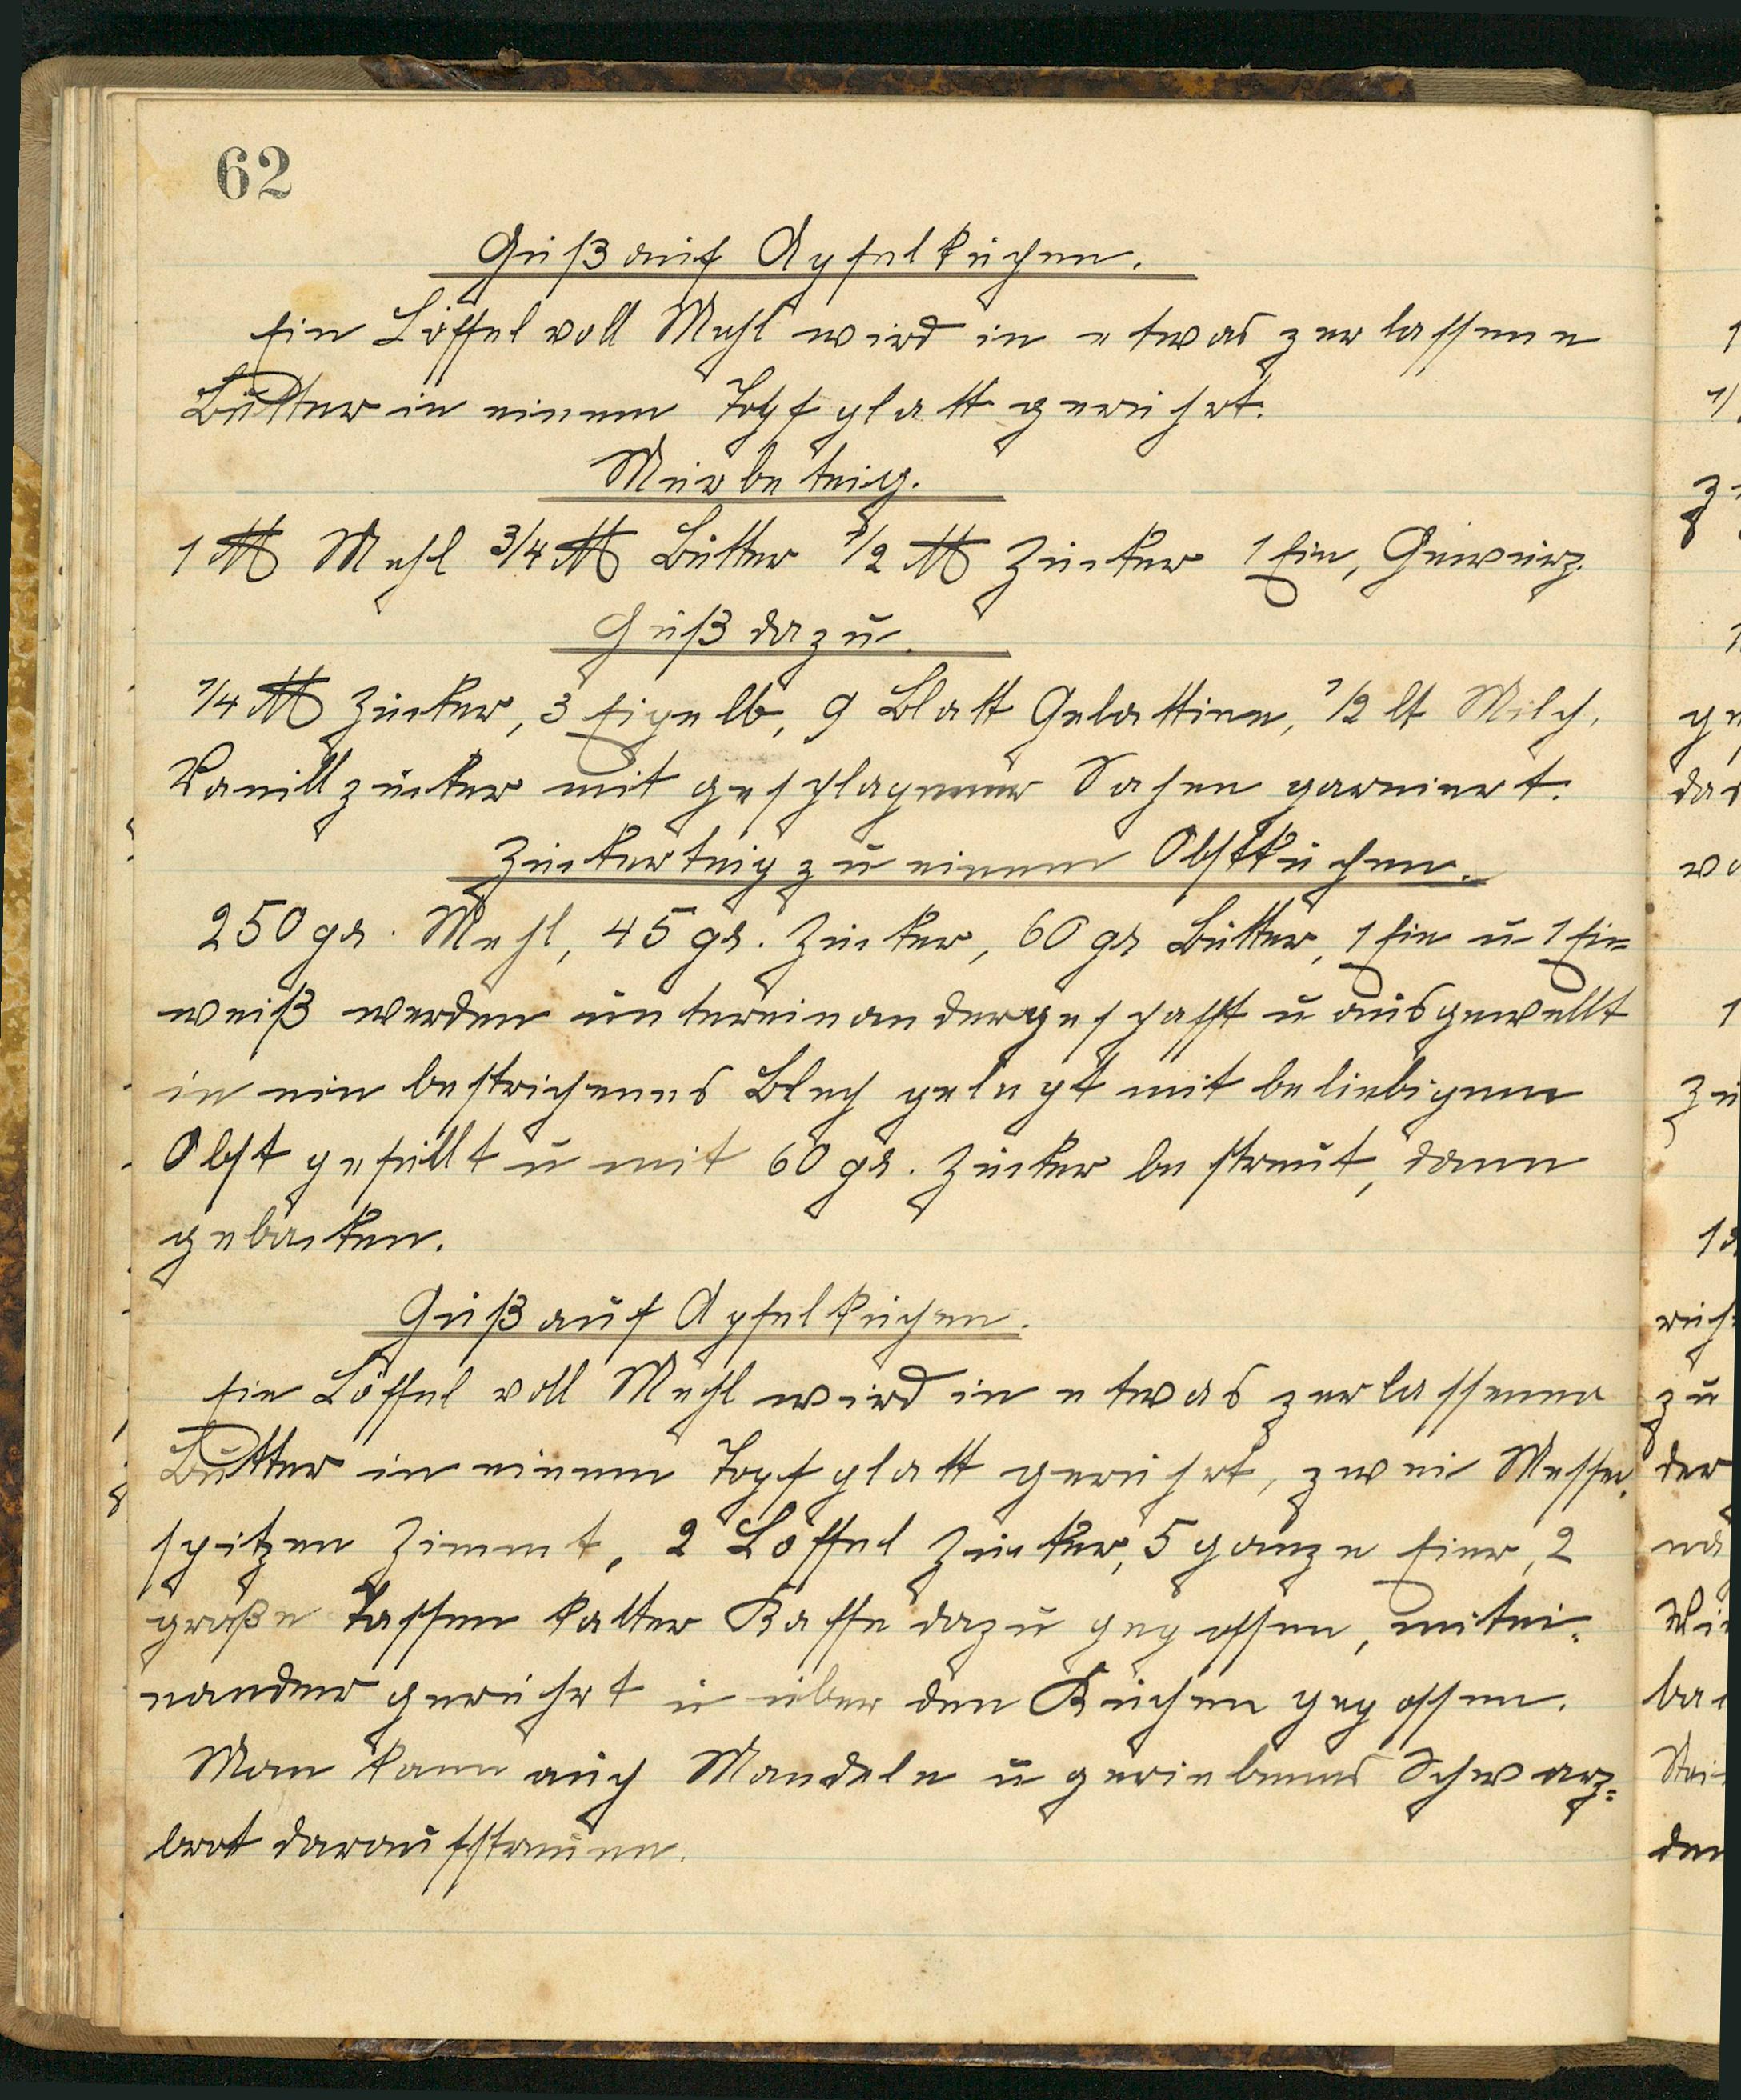 62
Guß auf Apfelkuchen.
Ein Löffel voll Mehl wird in etwas zerlassene
Butter in einem Topf glatt gerührt.
Mürbeteig.
1 ℔ Mehl 3/4 ℔ Butter 1/2 ℔ Zucker 1 Ei, Gewürz.
Guß dazu.
1/4 ℔ Zucker, 3 Eigelb, 9 Blatt Gelattine, 1/2 lt Milch,
Vanillzucker mit geschlagener Sahne garniert.
Zuckerteig zu einem Obstkuchen.
250 gr. Mehl, 45 gr. Zucker, 60 gr Butter, 1 Ei u 1 Ei=
weiß werden untereinandergeschafft u ausgewellt
in ein bestrichenes Blech gelegt mit beliebigem
Obst gefüllt u mit 60 gr. Zucker bestreut, dann
gebacken.
Guß auf Apfelkuchen.
Ein Löffel voll Mehl wird in etwas zerlassener
Butter in einem Topf glatt gerührt, zwei Messer=
spitzen Zimmt, 2 Löffel Zucker, 5 ganze Eier, 2
große Tassen kalter Kaffe dazu gegossen, mitei=
nander gerührt u über den Kuchen gegossen.
Man kann auch Mandeln u geriebenes Schwarz=
brot daraufstreuen.